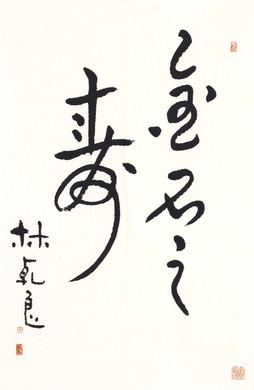 金石之
寿
林乾良